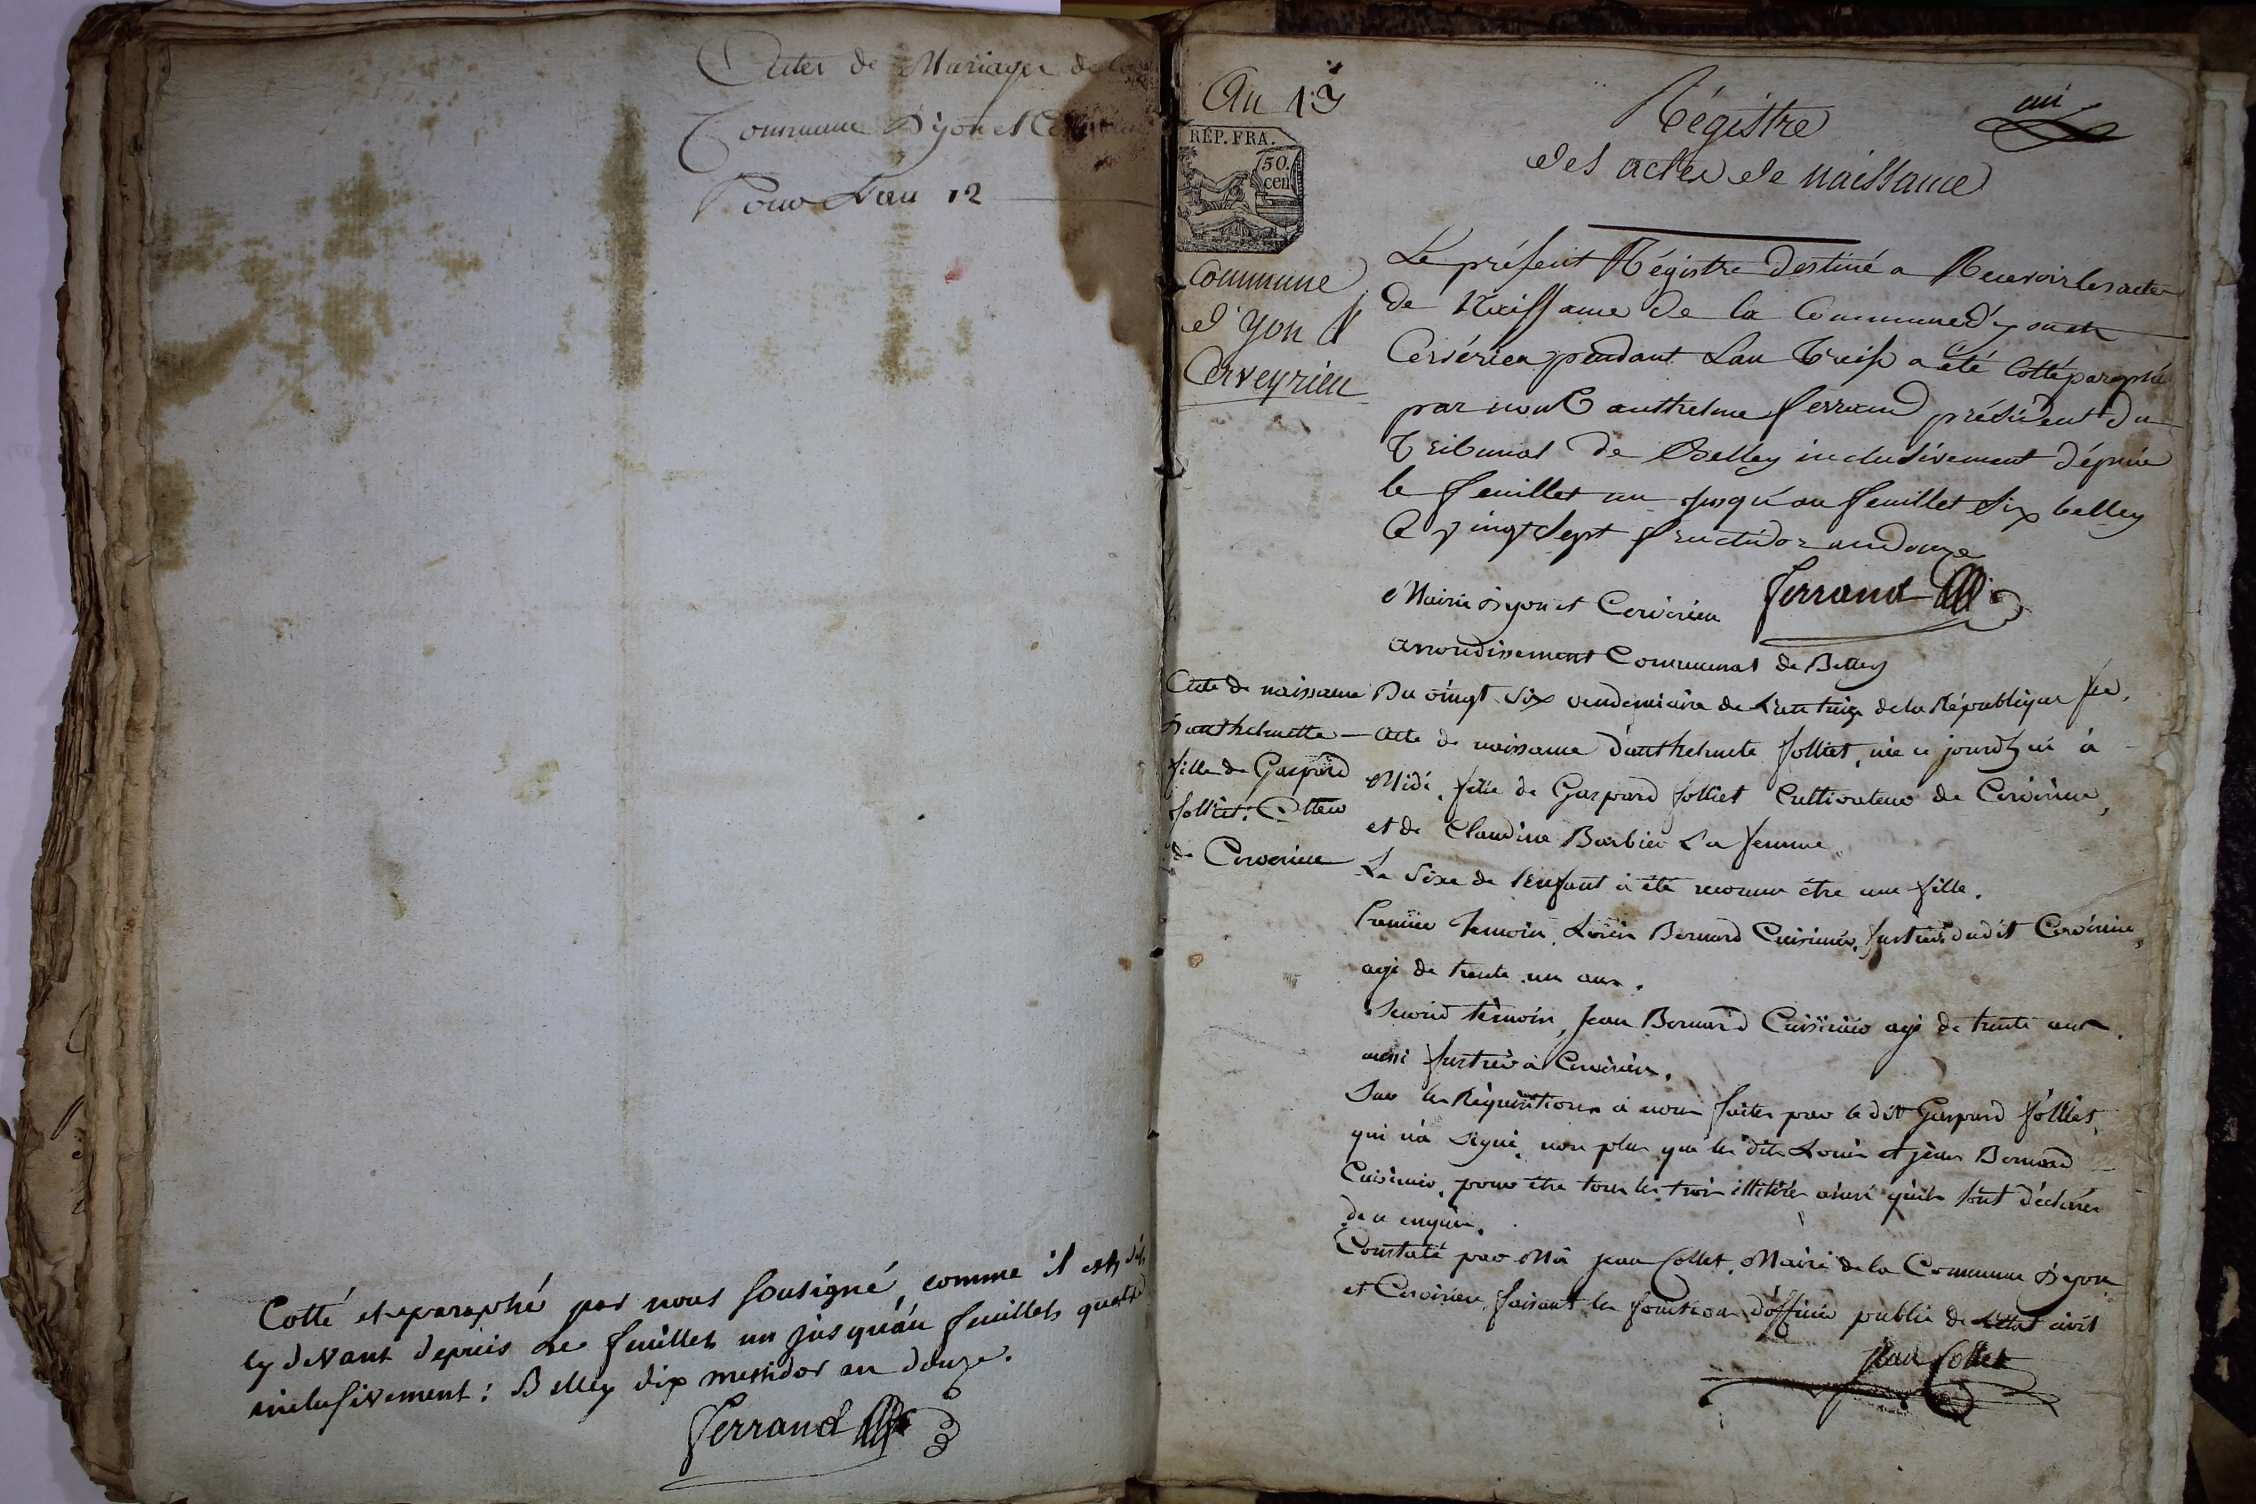 Actes de Mariages de la
Commune d'yon et
Pour L'an 12
Cotté et paraphé par nous soussigné, comme il est dit
cy devant depuis Le feuillet un jusqu'au feuillet quatre
inclusivement : Belley dix messidor an douze.
Ferrand
An 13
un
RÉP. FRA.
50.
cen
Régistre
des actes de naissance
Commune
d'yon &
Cerveyrieu
Le présent Régistre destiné a Recevoir les actes
de Naissance de la Commune d'yon et
Cervérieu pendant L'an treise a été Cotté paraphé
par nous anthelme ferrand président du
Tribunal de Belley inclusivement dépuis
le feuillet un jusqu'au feuillet six belley
le vingt sept fructidor an douze
Ferrand
Mairie d'yon et Cervérieu
arrondissement Communal de Belley
Acte de naissance
d'anthelmette
fille de Gaspard
folliet
de Cervérieu
Du vingt six vendemiaire de L'an treize de la République
Acte de naissance d'anthelmette folliet, née ce jourd'hui à
Midi, fille de Gaspard folliet Cultivateur de Cervérieu,
et de Claudine Barbier sa femme.
Le sexe de l'enfant à été reconnu être une fille.
Premier témoin, Louis Bernard Cuisinier, dudit Cervérieu,
agé de trente un ans.
Second témoin, Jean Bernard Cuisinier agé de trente ans
aussi à Cervérieu.
Sur les Réquisitions à nous faites par le dit Gaspard folliet,
qui n'a signé, non plus que les dits Louis et jean Bernard
Cuisinier, pour être tous les trois illitérés ainsi qu'ils l'ont déclaré
de ce enquis.
Constaté par Moi jean Collet, Maire de la Commune d'yon
et Cervérieu, faisant les fonctions d'officier public de L'état civil
Jean Collet